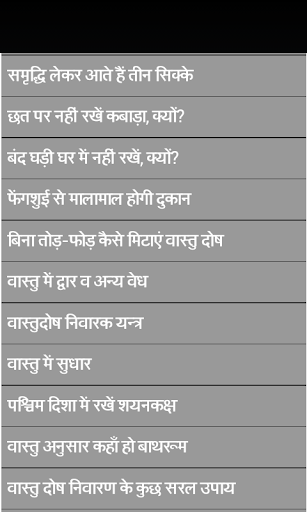 समृद्धि लेकर आते हैं तीन सिक्के
छत पर नहीं रखें कबाड़ा, क्यों?
बंद घड़ी घर में नहीं रखें, क्यों?
फेंगशुई से मालामाल होगी दुकान
बिना तोड़-फोड़ कैसे मिटाएं वास्तु दोष
वास्तु में द्वार व अन्य वेध
वास्तुदोष निवारक यन्त्र
वास्तु में सुधार
पश्चिम दिशा में रखें शयनकक्ष
वास्तु अनुसार कहाँ हो बाथरूम
वास्तु दोष निवारण के कुछ सरल उपाय